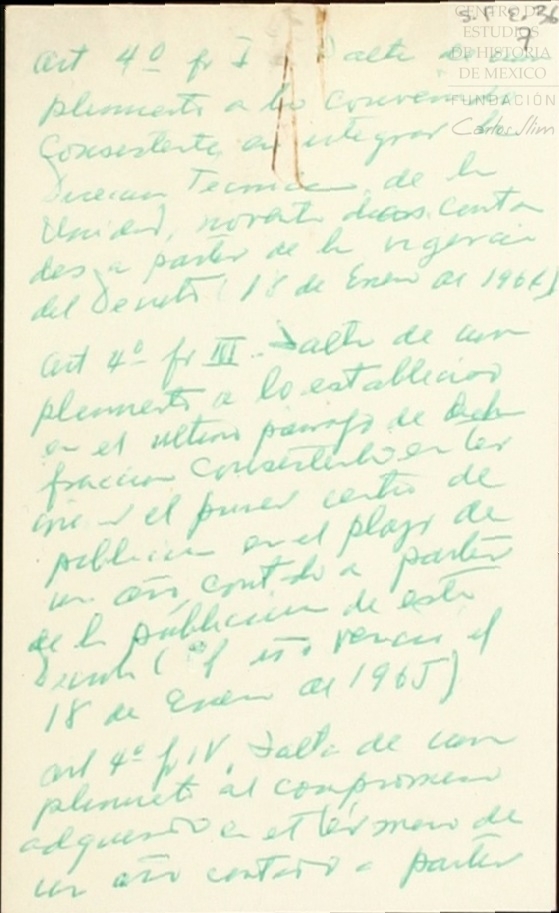 CENTRO DE
ESTUDIOS
DE HISTORIA
DE MEXICO
FUNDACIÓN
Carlos Slim
7
Art 4º fr I Falta de cum
plimiento a lo convenido
Consistente en integrar la
Direccion Tecnica de la
Unidad, noventa dias conta
dos a partir de la vigencia
del Decreto (18 de Enero de 1964)
Art 4º fr III. Falta de cum
plimiento a lo establecido
en el ultimo parrafo de dicha
fraccion consistente en ter
minar el primer centro de
poblacion en el plazo de
un año, contado a partir
de la publicacion de este
Decreto ( el año vencio el
18 de Enero de 1965)
Art 4º fr IV, Falta de cum
plimiento al compromiso
adquirido en el término de
un año contado a partir